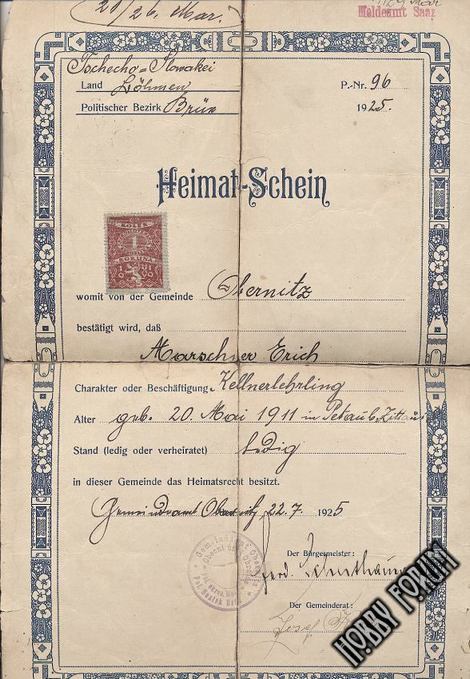 26. Mar.
Meldeamt Saaz
Tschecho-Slowakei
Land Böhmen
Politischer Bezirk Brüx
P.-Nr. 96
1925.
Heimat-Schein
KOLEK
1
KORUNA
womit von der Gemeinde Obernitz
bestätigt wird, daß
Marschner Erich
Charakter oder Beschäftigung Kellnerlehrling
Alter geb. 20. Mai 1911 in
Stand (ledig oder verheiratet) ledig
in dieser Gemeinde das Heimatsrecht besitzt.
Gemeindeamt Obernitz 22.7. 1925
Der Bürgermeister:
Ferd.
Der Gemeinderat:
Josef
HOBBY FORUM